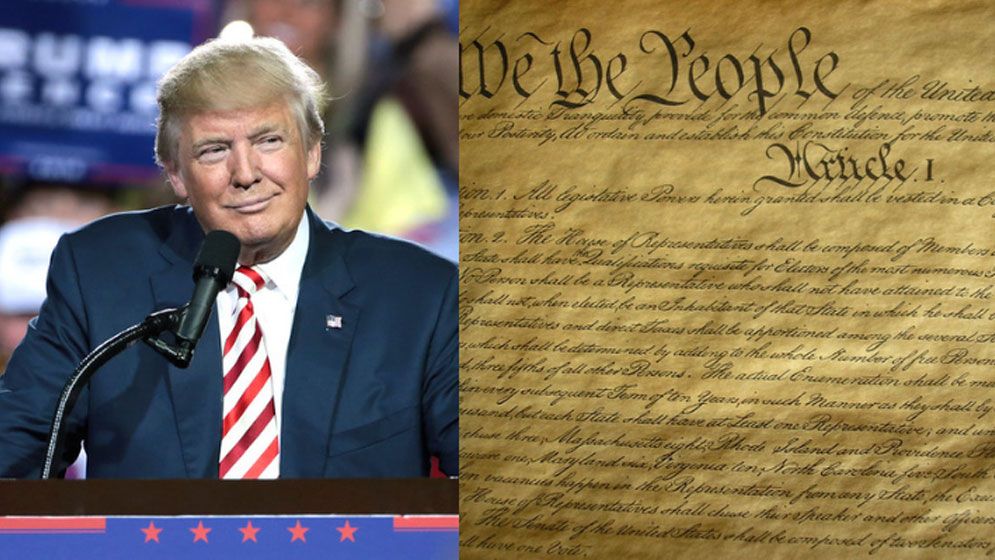 TRUMP
PENCE
We the People of the United
domestic Tranquility, provide for the common defence, promote the
our Posterity, do ordain and establish this Constitution for the United
Article. I.
1. All legislative Powers herein granted shall be vested in a
Representatives.
2. The House of Representatives shall be composed of Members
State shall have the Qualifications requisite for Electors of the most numerous
No Person shall be a Representative who shall not have attained to the
shall not, when elected, be an Inhabitant of that State in which he shall be
Representatives and direct Taxes shall be apportioned among the several
which shall be determined by adding to the whole Number of free Persons
three fifths of all other Persons. The actual Enumeration shall be
every subsequent Term of ten Years, in such Manner as they shall by
but each State shall have at Least one Representative; and
chuse three, Massachusetts eight, Rhode Island and Providence
one, Maryland six, Virginia ten, North Carolina five, South
vacancies happen in the Representation from any State, the
House of Representatives shall chuse their Speaker and other Officers
The Senate of the United States shall be composed of two Senators
have one Vote.